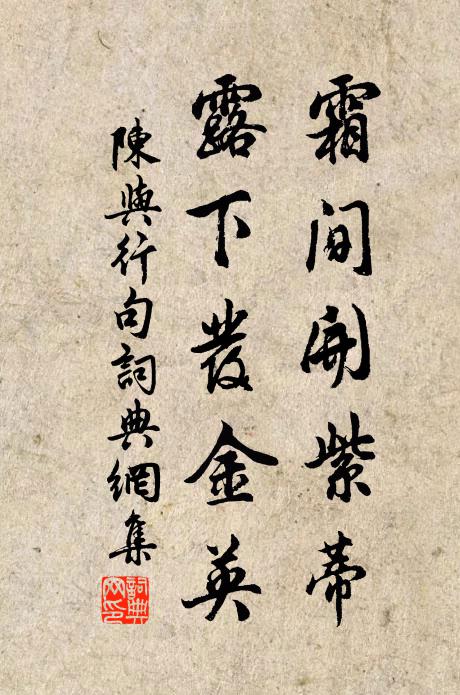 霜間開紫蒂
露下發金英
陳與行句詞典網集
詞典
网印